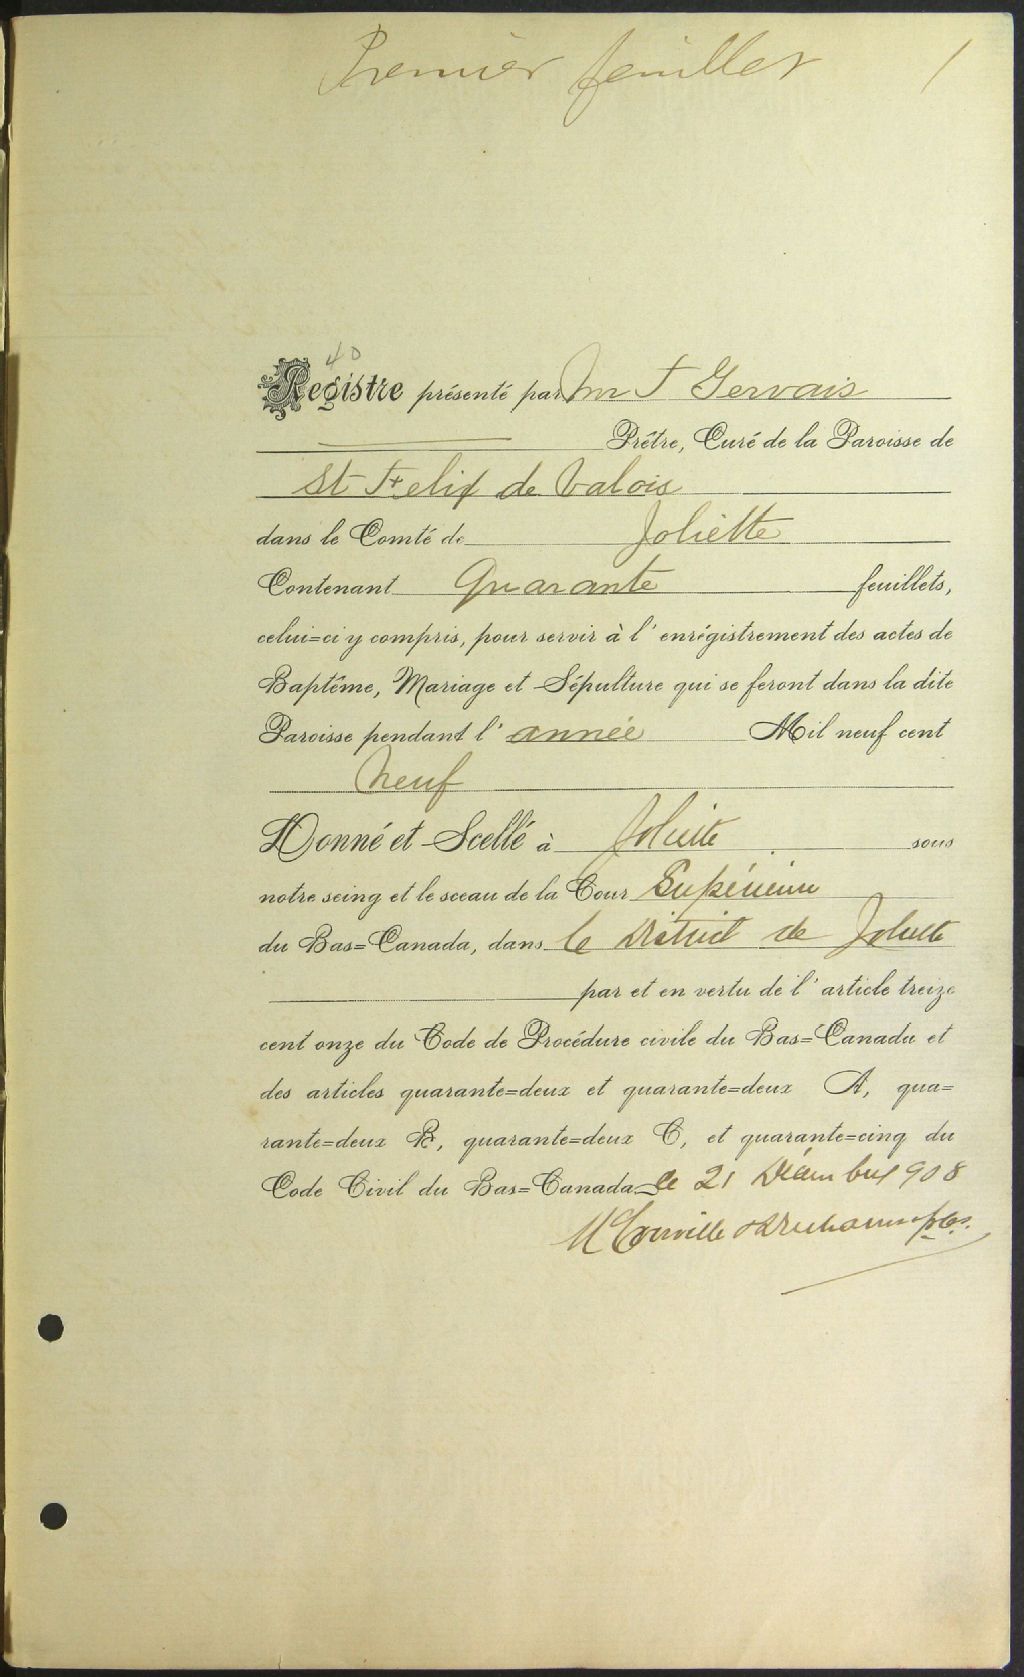 Premier feuillet 1
40
Registre présenté par Mr F Gervais
Prêtre, Curé de la Paroisse de
St Felix de Valois
dans le Comté de Joliette
Contenant Quarante feuillets,
celui=ci y compris, pour servir à l'enrégistrement des actes de
Baptême, Mariage et Sépulture qui se feront dans la dite
Paroisse pendant l'année Mil neuf cent
Neuf
Donné et Scellé à Joliette sous
notre seing et le sceau de la Cour Supérieure
du Bas=Canada, dans le District de Joliette
par et en vertu de l'article treize
cent onze du Code de Procédure civile du Bas=Canada et
des articles quarante=deux et quarante=deux A, qua=
rante=deux B, quarante=deux C, et quarante=cinq du
Code Civil du Bas=Canada le 21 Décembre 1908